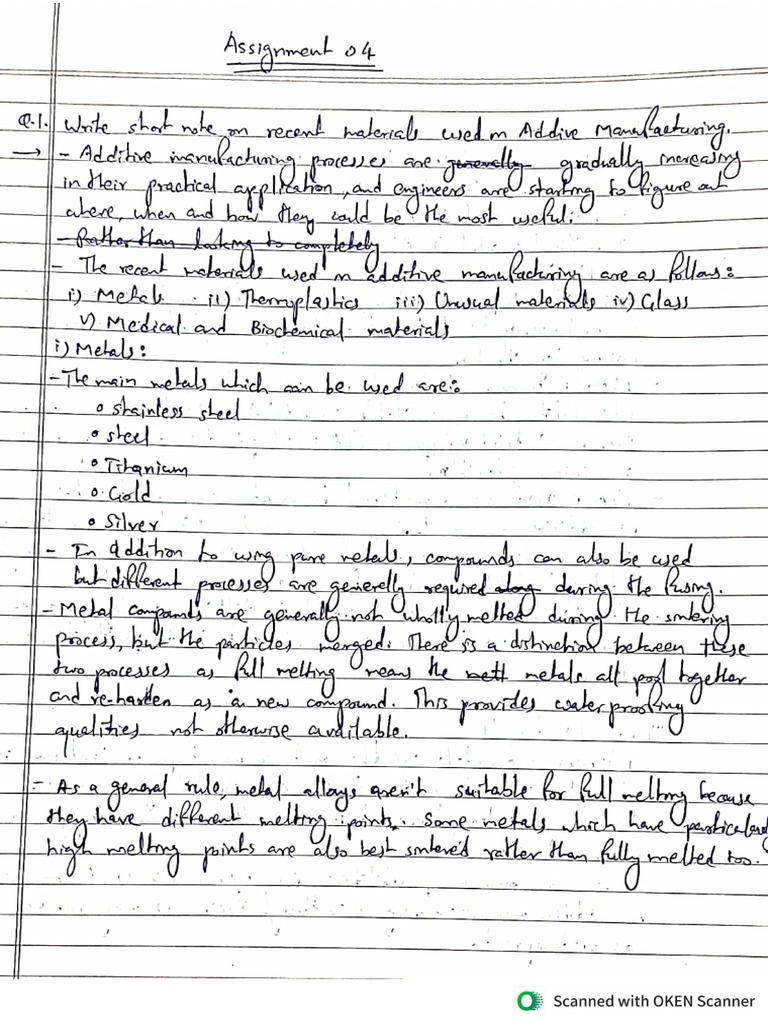 Assignment 04
Q.1. Write short note on recent materials used in Addive Manufacturing.
→ - Additive manufacturing processes are generally gradually increasing
in their practical application, and engineers are starting to figure out
where, when and how they could be the most useful.
- Rather than looking to completely
- The recent materials used in additive manufacturing are as follows:
i) Metals ii) Thermyplastics iii) Unusual materials iv) Glass
v) Medical and Biochemical materials
i) Metals:
- The main metals which can be used are:
• stainless steel
• steel
• Titanium
• Gold
• Silver
- In addition to using pure metals, compounds can also be used
but different processes are generelly required along during the fusing.
- Metal compounds are generally not wholly melted during the sintering
process, but the particles merged. There is a distinction between these
two processes as full melting means the mett metals all pool together
and re-harden as a new compound. This provides waterproofing
qualities not otherwise available.
- As a general rule, metal alloys aren't suitable for full melting because
they have different melting points. Some metals which have particularly
high melting points are also best sintered rather than fully melted too.
Scanned with OKEN Scanner